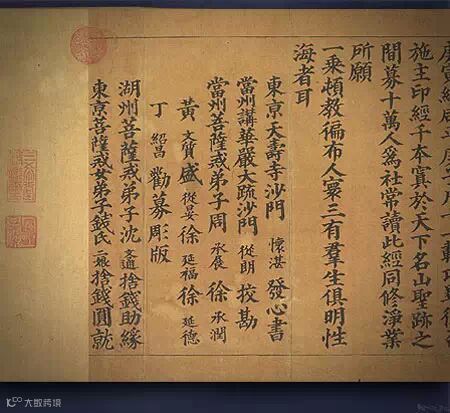 施主印經千本寘於天下名山聖跡之
間募十萬人為社常讀此經同修淨業
所願
一乘頓教徧布人寰三有羣生俱明性
海者耳
東京天壽寺沙門 懷湛 發心書
當州講華嚴大疏沙門 從朗 挍勘
當州菩薩戒弟子周 承展 徐 承潤
黃 文質 盛 從旻 徐 延福 徐 延德
丁 紹昌 勸募彫版
湖州菩薩戒弟子沈 捨錢助緣
東京菩薩戒女弟子錢氏 捨錢圓就
大数跨境